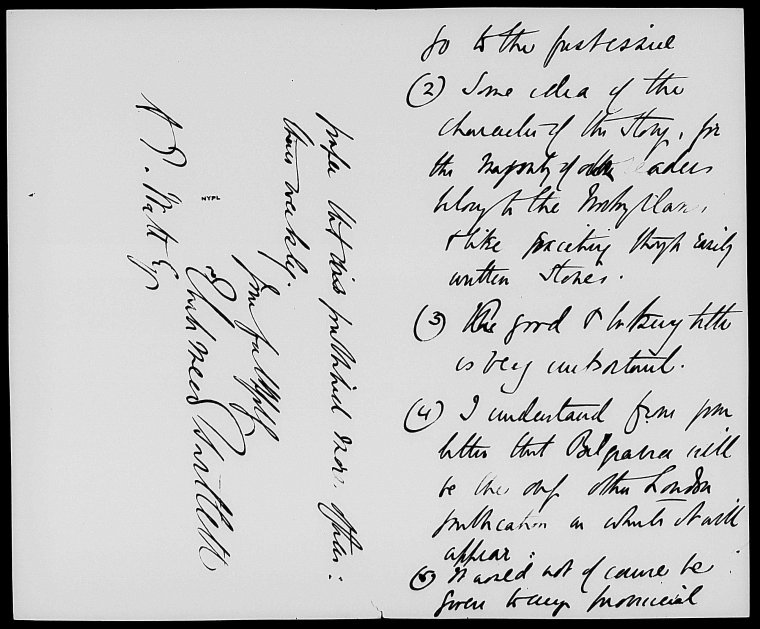 go to the first issue
(2) Some idea of the
character of the story, for
the majority of our readers
belong to the Working Class,
& like exciting though easily
written stories.
(3) The good & taking title
is very important.
(4) I understand from your
letter that Belgravia will
be the only other London
publication in which it will
appear:
(5) It would not of course be
given to any provincial
paper that was published more often:
than weekly.
Yours faithfully
E Ashmead Bartlett
A P. Watt Esq
NYPL